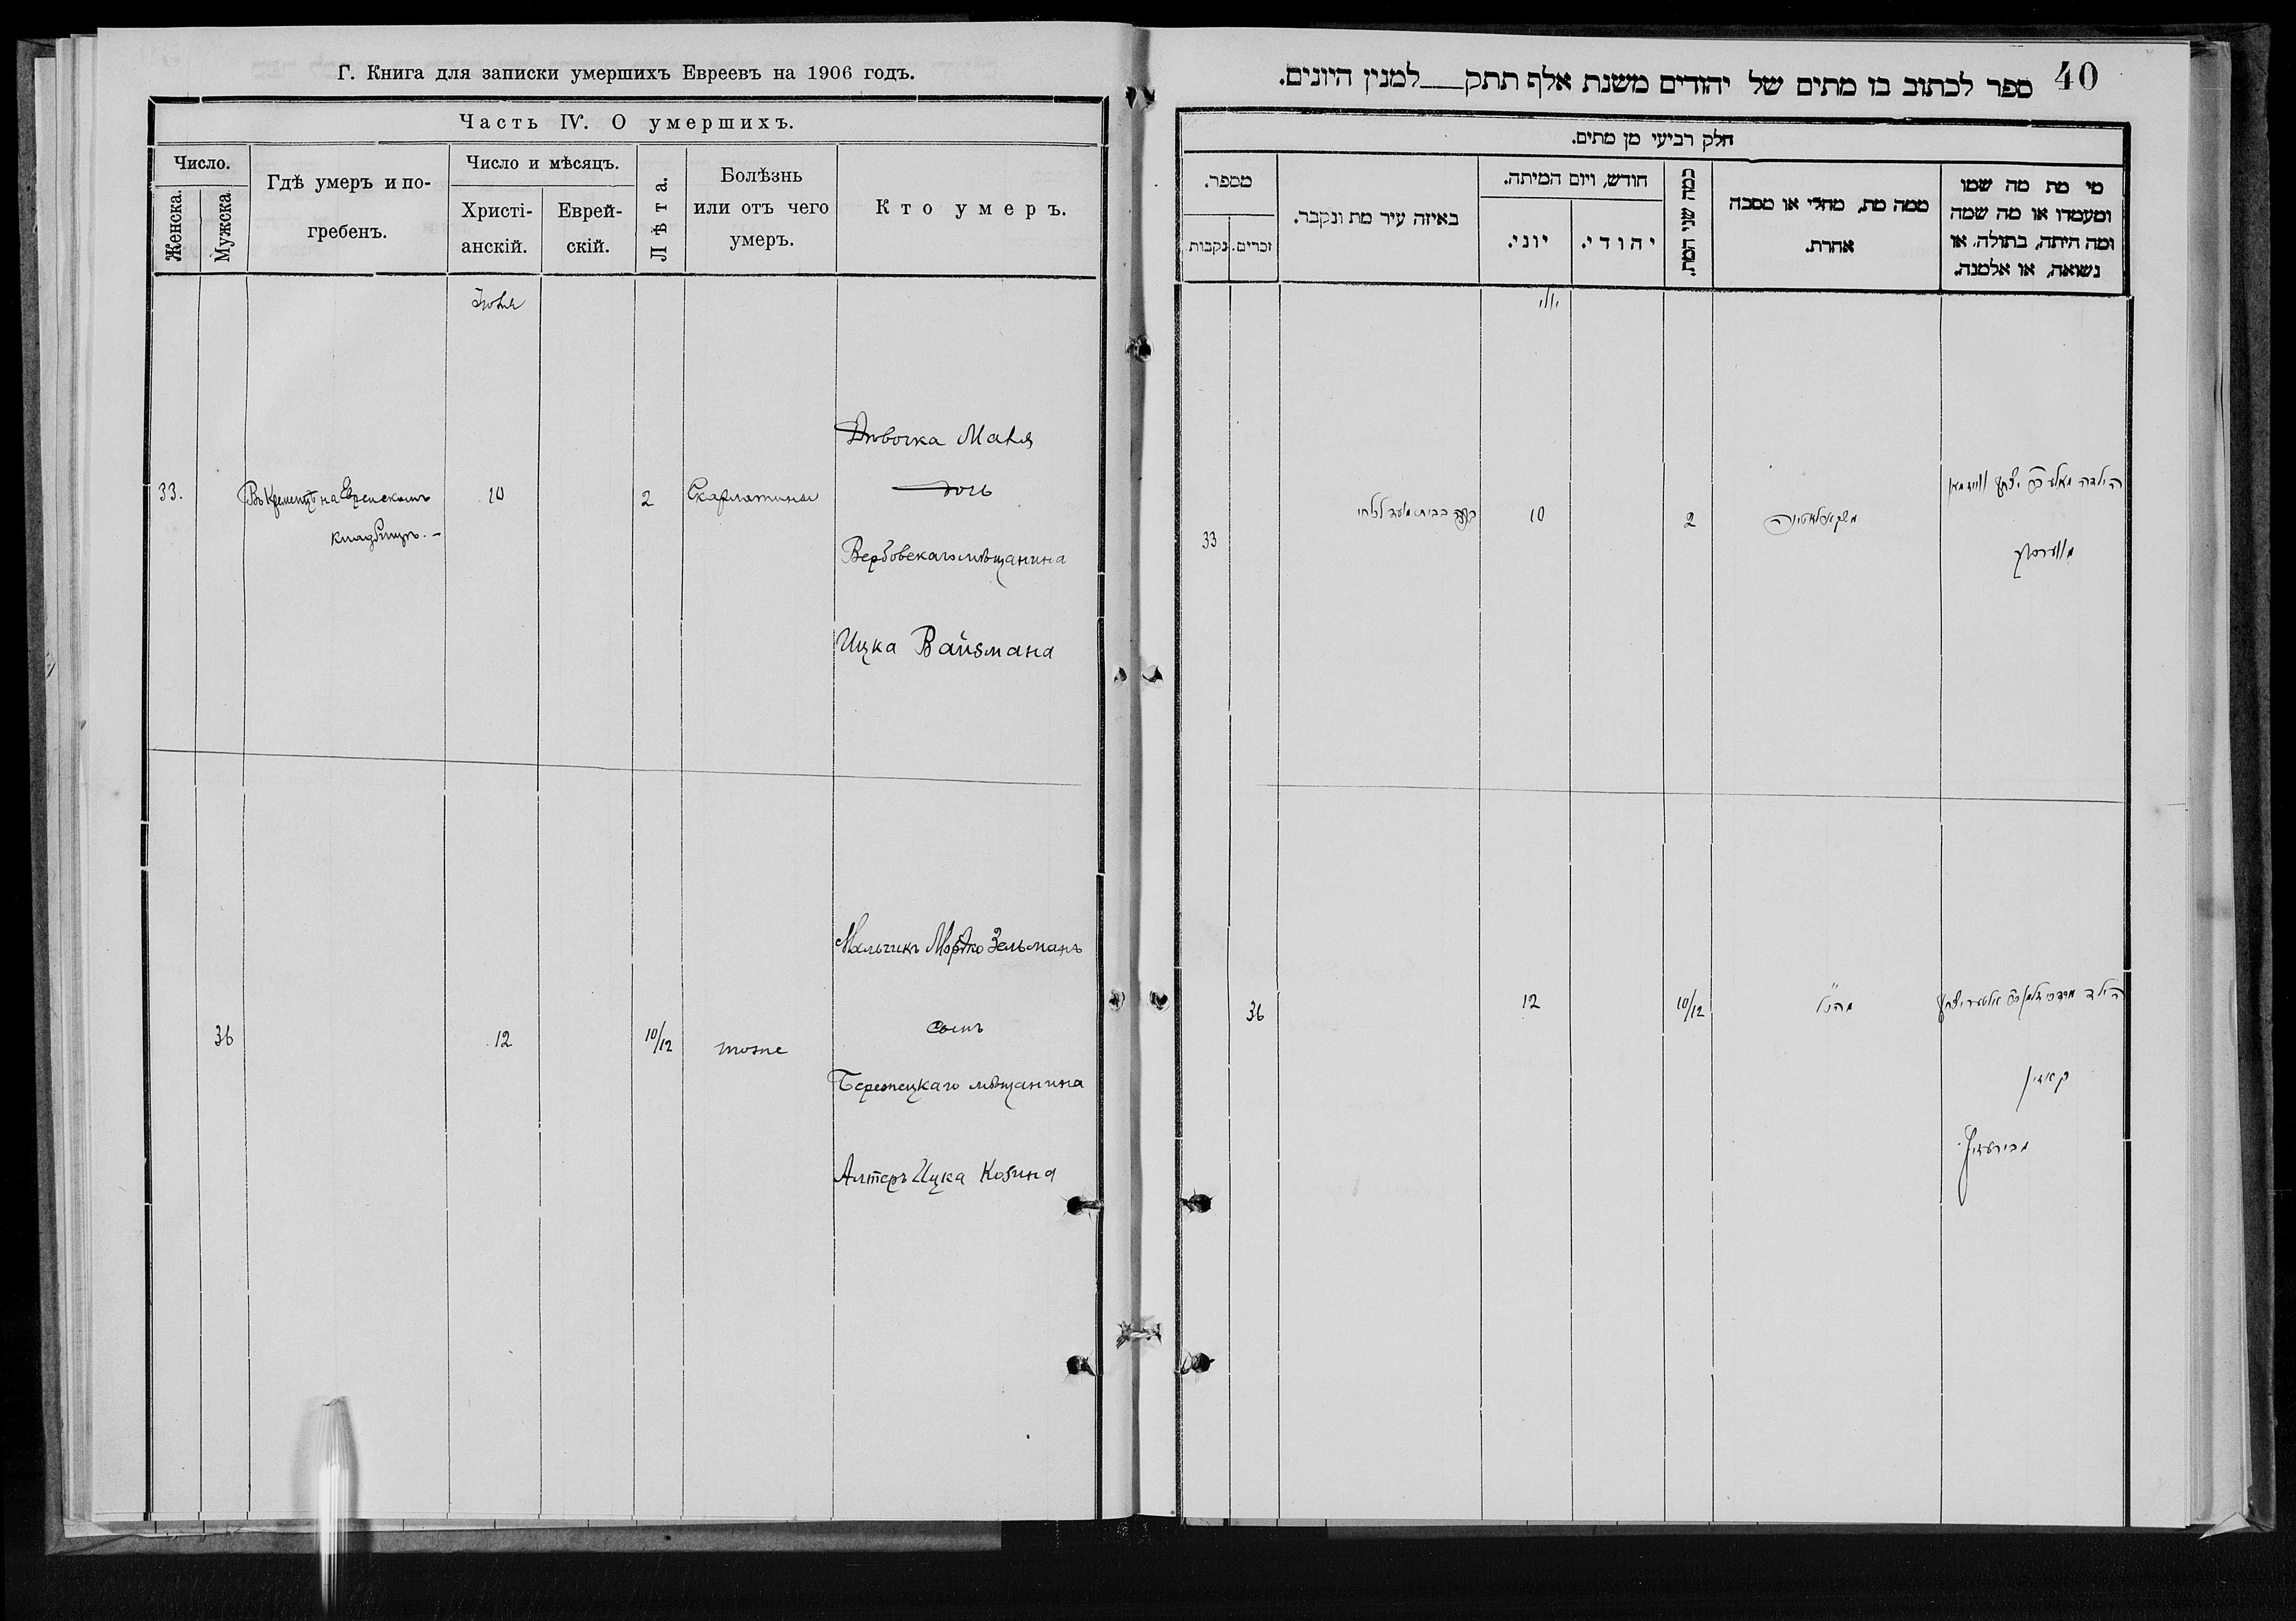 Г. Книга для записки умершихъ Евреевъ на 1906 годъ.
Часть IV. О умершихъ.
Число.
Женска.
Мужска
Гдѣ умеръ и по-
гребенъ.
Число и мѣсяцъ.
Христі-
анскій.
Еврей-
скій.
Лѣта.
Болѣзнь
или отъ чего
умеръ.
Кто умеръ.
Іюля
33.
Въ Кременцѣ на Еврейскомъ
кладбищѣ. -
10
2
Скарлатины
Дѣвочка Маня
дочь
Вербовскаго мѣщанина
Ицка Вайзмана
36
12
10/12
тоже
Мальчикъ Мордко Зельманъ
сынъ
Бережецкаго мѣщанина
Алтеръ Ицка Козина
40
ספר לכתוב בו מתים של יהודים משנת אלף תתק למנין היונים.
חלק רביעי מן מתים.
מספר.
נקבות.
זכרים.
באיזה עיר מת ונקבר.
חודש, ויום המיתה.
יוני.
יהודי.
כמה שני המת.
ממה מת, מחלי או מסבה
אחרת.
מי מת מה שמו
ומעמדו או מה שמה
ומה היתה, בתולה, או
נשואה, או אלמנה.
יולי
33
10
2
36
12
10/12
מהנ"ל
קאזין